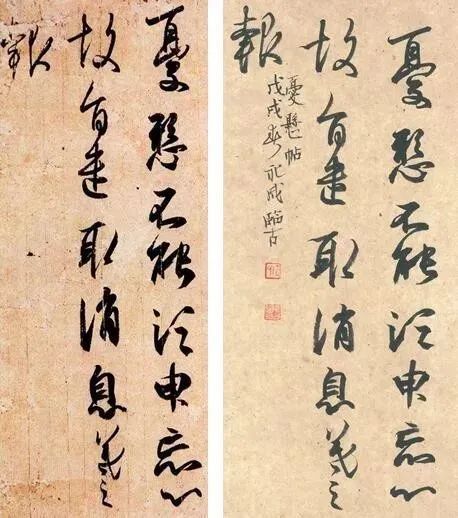 憂懸不能須臾忘心
故旨遣取消息羲之
報
憂懸不能須臾忘心
故旨遣取消息羲之
報
憂懸帖
戊戌春永成臨古